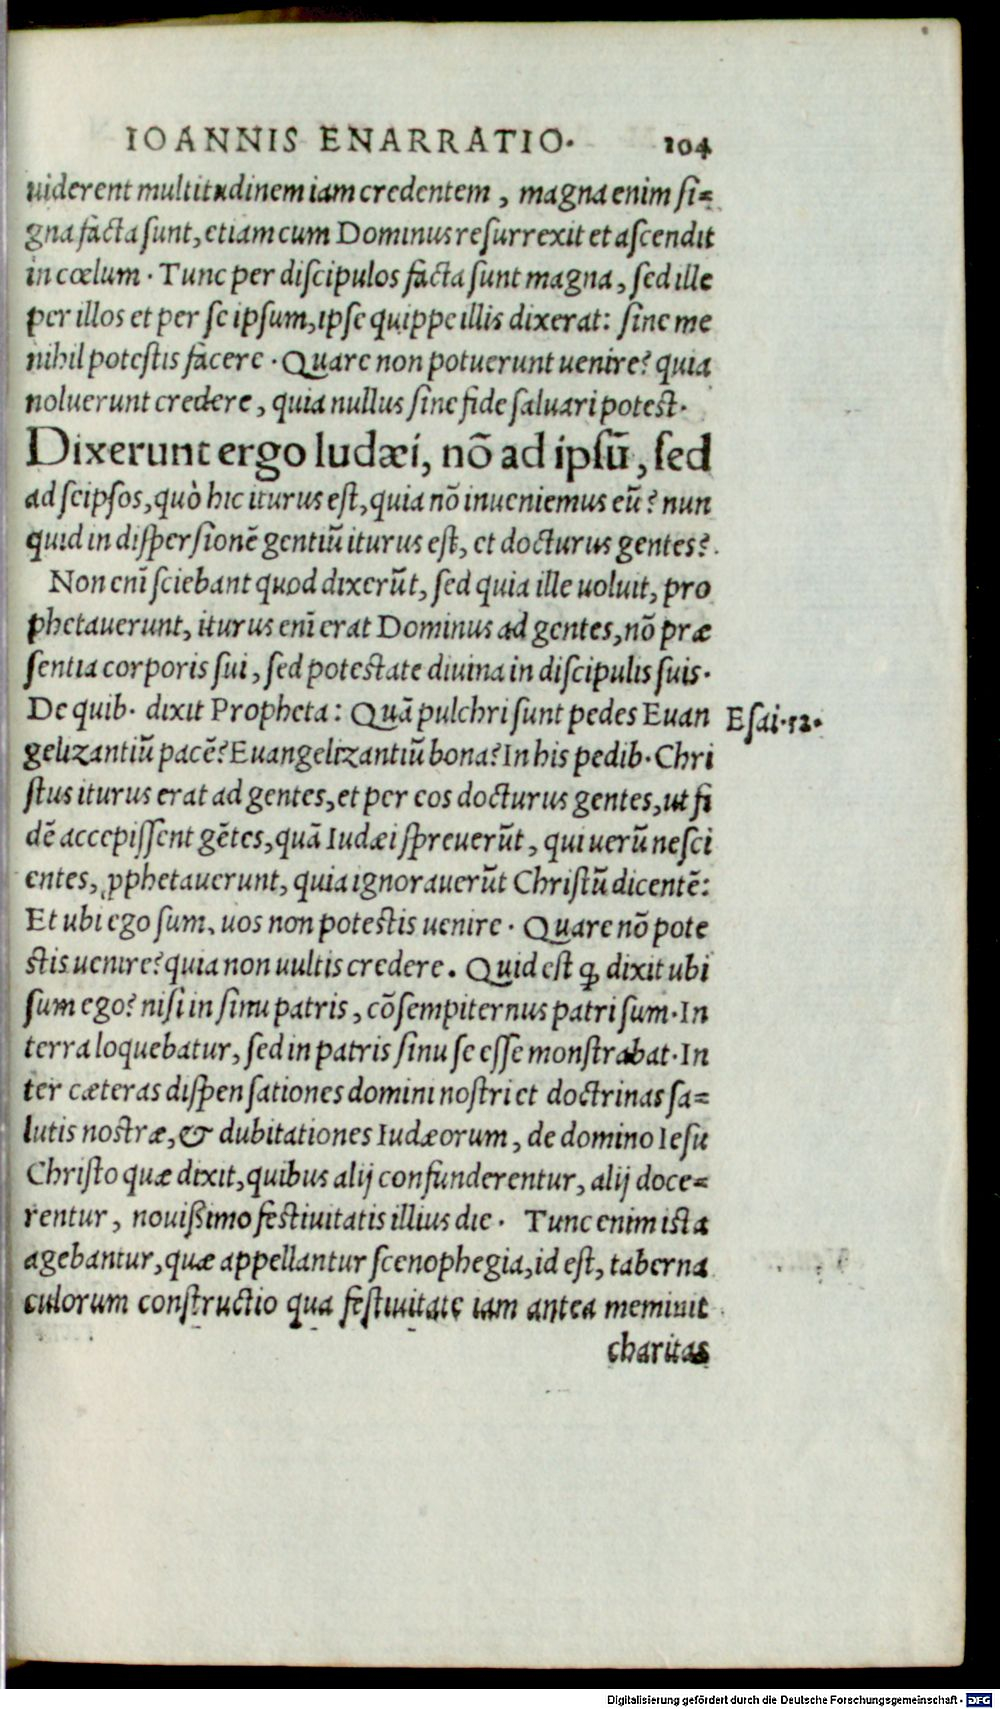 IOANNIS ENARRATIO. 104
uiderent multitudinem iam credentem, magna enim si=
gna facta sunt, etiam cum Dominus resurrexit et ascendit
in cœlum. Tunc per discipulos facta sunt magna, sed ille
per illos et per se ipsum, ipse quippe illis dixerat: sine me
nihil potestis facere. Quare non potuerunt uenire? quia
noluerunt credere, quia nullus sine fide saluari potest.
Dixerunt ergo Iudæi, nō ad ipsū, sed
ad seipsos, quò hic iturus est, quia nō inueniemus eū? nun
quid in dispersionē gentiū iturus est, et docturus gentes?
Non enī sciebant quod dixerūt, sed quia ille uoluit, pro
phetauerunt, iturus enī erat Dominus ad gentes, nō præ
sentia corporis sui, sed potestate diuina in discipulis suis.
De quib. dixit Propheta: Quā pulchri sunt pedes Euan
Esai.52.
gelizantiū pacē? Euangelizantiū bona? In his pedib. Chri
stus iturus erat ad gentes, et per eos docturus gentes, ut fi
dē accepissent gētes, quā Iudæi spreuerūt, qui uerū nesci
entes, ꝓphetauerunt, quia ignorauerūt Christū dicentē:
Et ubi ego sum, uos non potestis uenire. Quare nō pote
stis uenire? quia non uultis credere. Quid est ꝙ dixit ubi
sum ego? nisi in sinu patris, cōsempiternus patri sum. In
terra loquebatur, sed in patris sinu se esse monstrabat. In
ter cæteras dispensationes domini nostri et doctrinas sa=
lutis nostræ, & dubitationes Iudæorum, de domino Iesu
Christo quæ dixit, quibus alij confunderentur, alij doce=
rentur, nouißimo festiuitatis illius die. Tunc enim ista
agebantur, quæ appellantur scenophegia, id est, taberna
culorum constructio qua festiuitate iam antea meminit
charitas
Digitalisierung gefördert durch die Deutsche Forschungsgemeinschaft - DFG